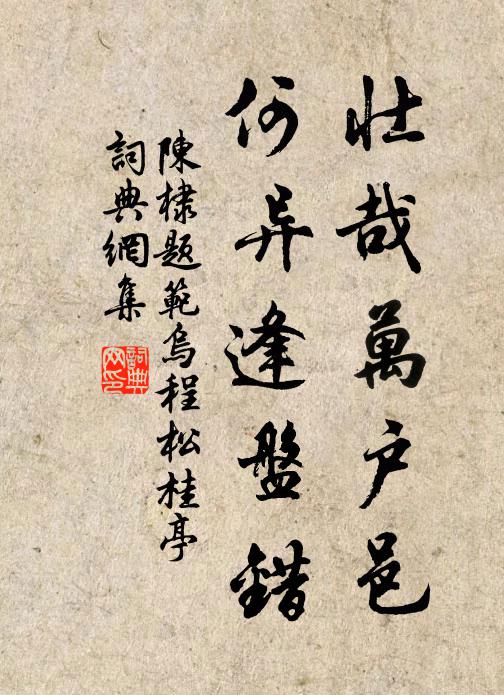 壮哉萬户邑
何异逢盤錯
陳棣題範烏程松桂亭
詞典網集
詞典
网印